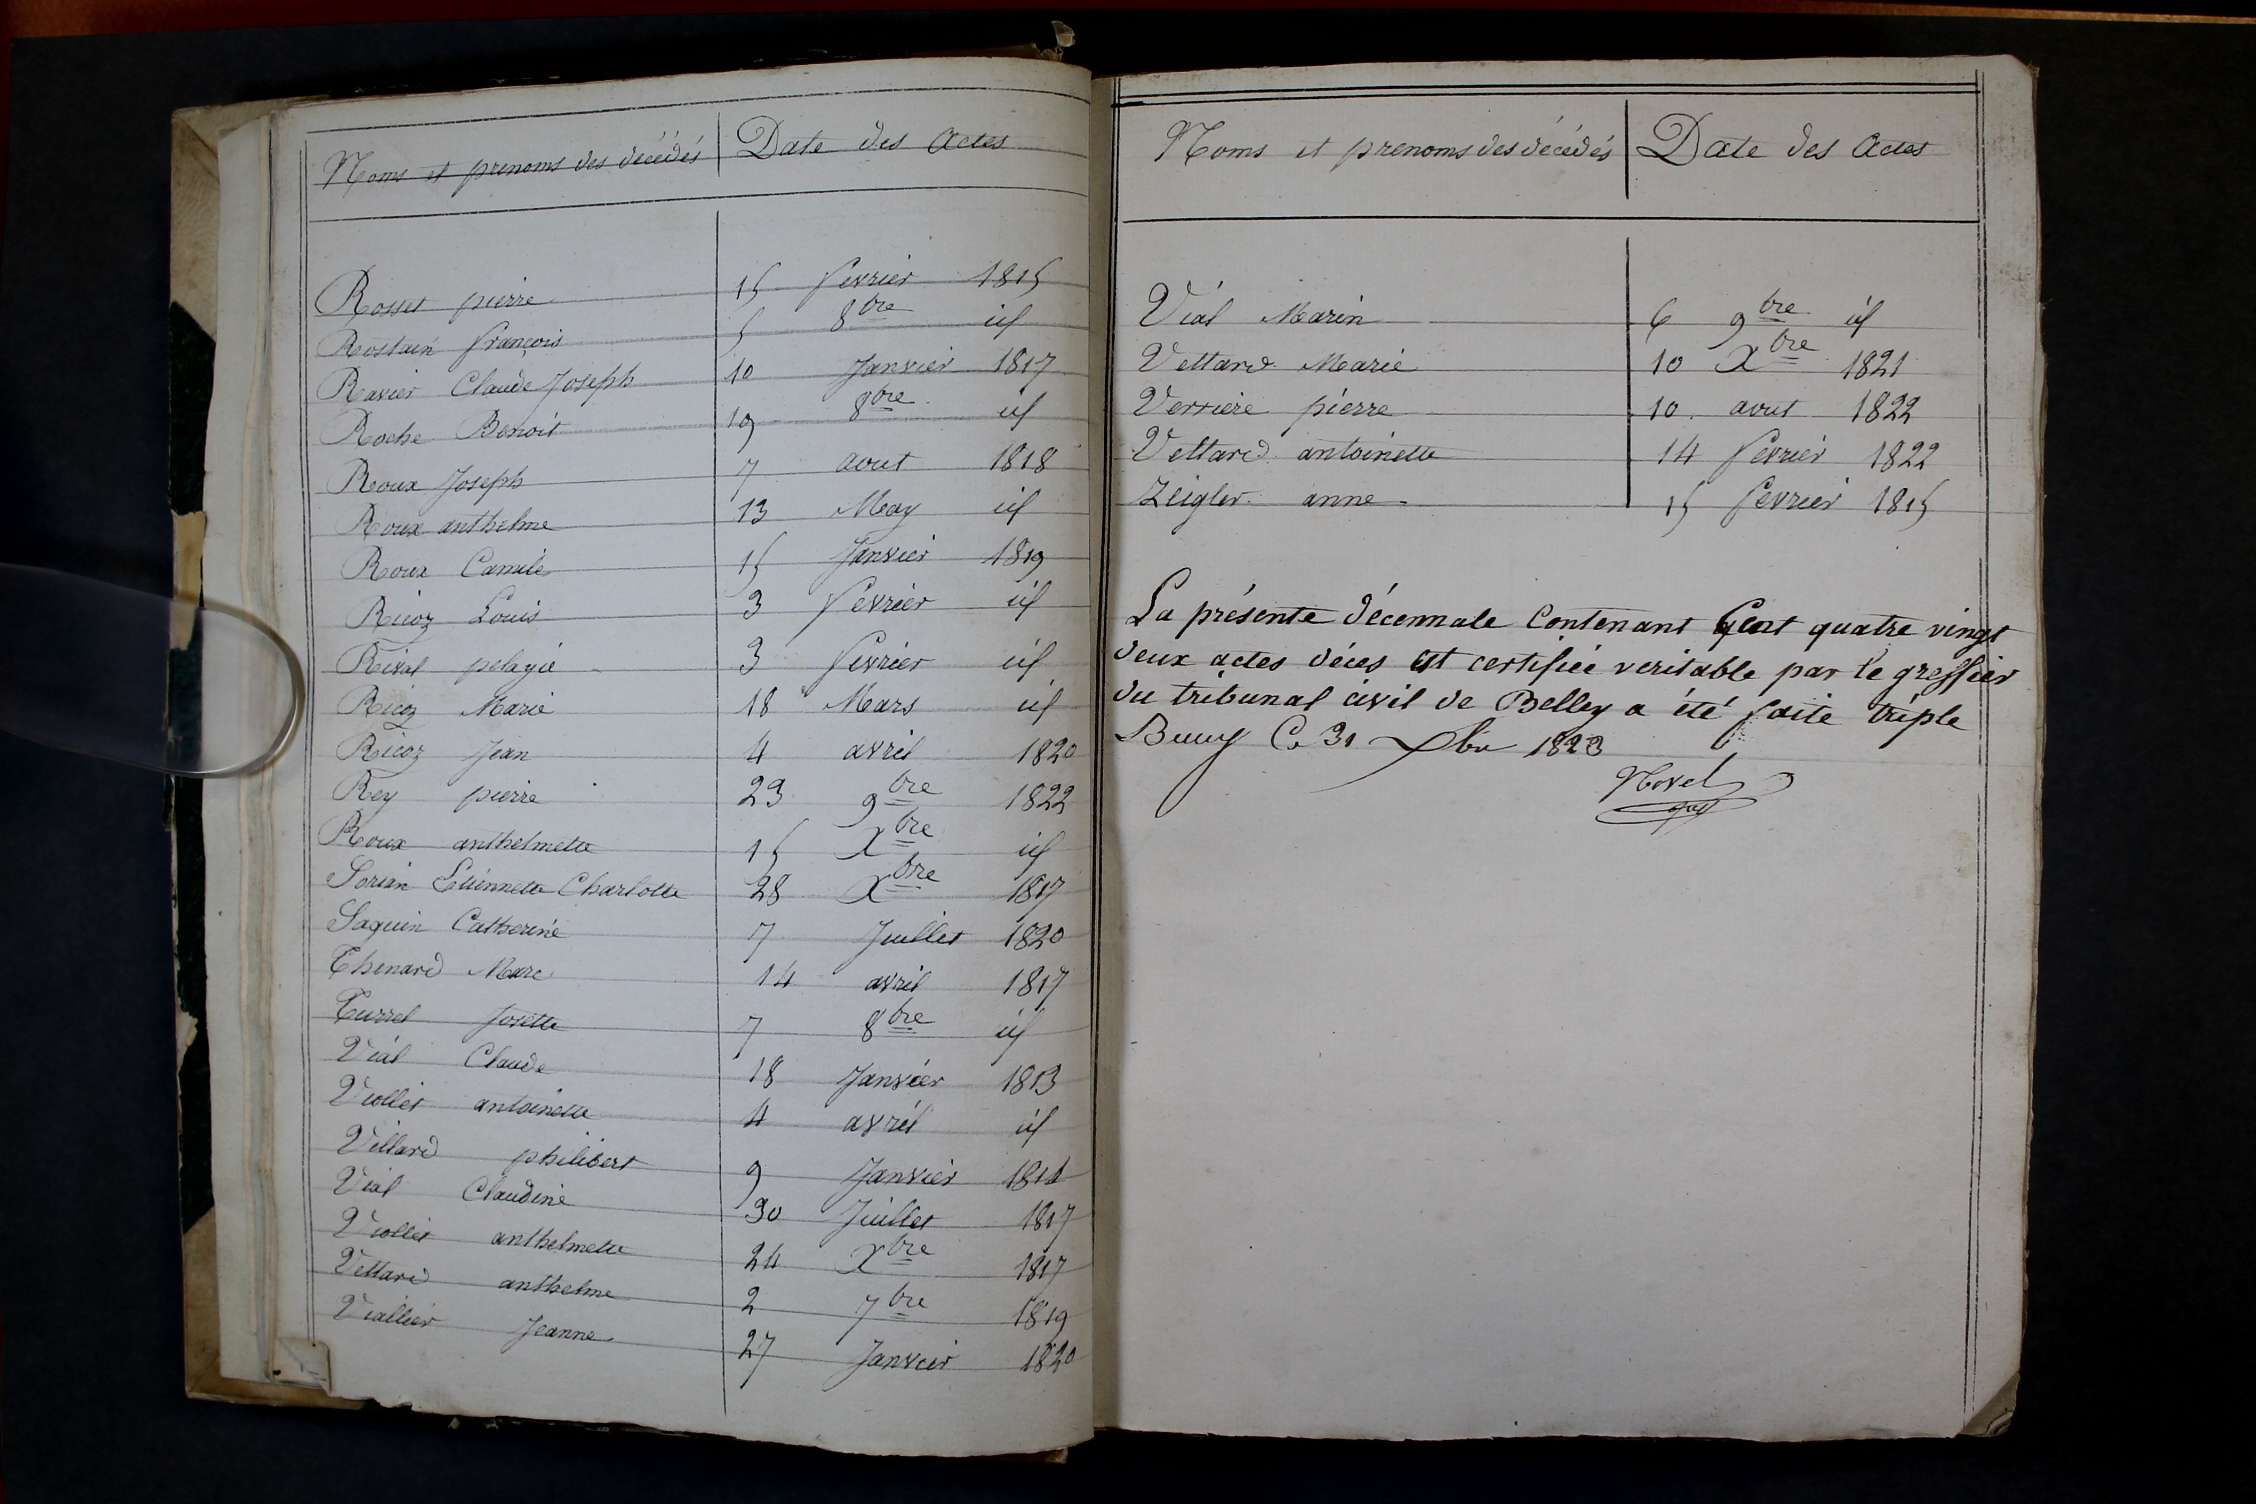 Noms et prenoms des décédés Date des Actes
Rosset pierre 15 fevrier 1815
Rostain françois 5 8bre id
Ravier Claude Joseph 10 Janvier 1817
Roche Benoit 19 8bre id
Roux Joseph 7 aout 1818
Roux anthelme 13 May id
Roux Camile 15 Janvier 1819
Ricoz Louis 3 fevrier id
Rival pelagie 3 fevrier id
Ricoz Marie 18 Mars id
Ricoz Jean 4 avril 1820
Rey pierre 23 9bre 1822
Roux anthelmette 15 Xbre id
Sorian Etiennette Charlotte 28 Xbre 1817
Saquin Catherine 7 Juillet 1820
Thenard Marc 14 avril 1817
Turrel Josette 7 8bre id
Vial Claude 18 Janvier 1813
Viollet antoinette 4 avril id
Villard philibert 9 Janvier 1814
Vial Claudine 30 Juillet 1817
Viollet anthelmette 24 Xbre 1817
Vettard anthelme 2 7bre 1819
Viallier Jeanne 27 Janvier 1820
Noms et prenoms des décédés Date des Actes
Vial Marin 6 9bre id
Vettard Marie 10 Xbre 1821
Verriere pierre 10 aout 1822
Vettard antoinette 14 fevrier 1822
Zeigler anne 15 fevrier 1815
La présente décennale Contenant Cent quatre vingt
deux actes déces est certifiée veritable par le greffier
du tribunal civil de Belley a été faite triple
Ce 31 Xbre 1823
Novel